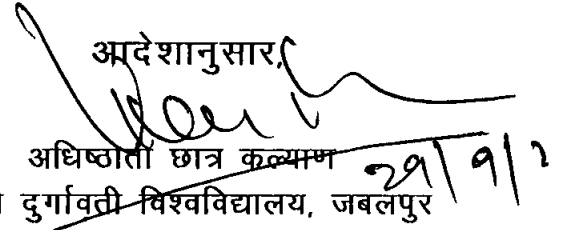 आदेशानुसार,
अधिष्ठाता छात्र कल्याण
दुर्गावती विश्वविद्यालय, जबलपुर 29/9/